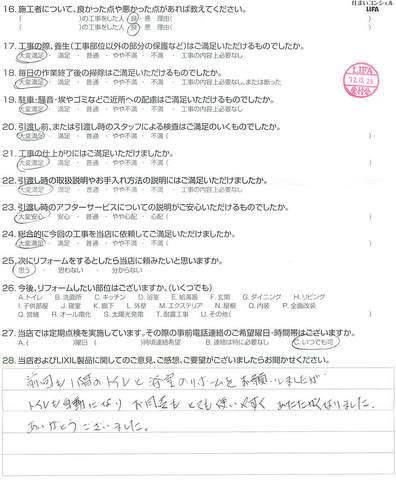 16. 施工者について、良かった点や悪かった点があれば教えてください。
住まいコンシェル
LIFA
( )の工事をした人 良・悪 理由( )
( )の工事をした人 良・悪 理由( )
17. 工事の際、養生(工事部位以外の部分の保護など)はご満足いただけるものでしたか。
大変満足 ・ 満足 ・ 普通 ・ やや不満 ・ 不満 ・ 工事の内容上必要なし
18. 毎日の作業終了後の掃除はご満足いただけるものでしたか。
大変満足 ・ 満足 ・ 普通 ・ やや不満 ・ 不満 ・ 工事の内容上必要なし、または断った
LIFA
受付印
19. 駐車・騒音・埃やゴミなどご近所への配慮はご満足いただけるものでしたか。
大変満足 ・ 満足 ・ 普通 ・ やや不満 ・ 不満( )
20. 引渡し前、または引渡し時のスタッフによる検査はご満足のいくものでしたか。
大変満足 ・ 満足 ・ 普通 ・ やや不満 ・ 不満( )
21. 工事の仕上がりにはご満足いただけましたか。
大変満足 ・ 満足 ・ 普通 ・ やや不満 ・ 不満( )
22. 引渡し時の取扱説明やお手入れ方法の説明にはご満足いただけましたか。
大変満足 ・ 満足 ・ 普通 ・ やや不満 ・ 不満 ・ 工事の内容上必要なし
23. 引渡し時のアフターサービスについての説明がご安心いただけるものでしたか。
大変安心 ・ 安心 ・ 普通 ・ やや心配 ・ 心配( )
24. 総合的に今回の工事を当店に依頼してご満足いただけましたか。
大変満足 ・ 満足 ・ 普通 ・ やや不満 ・ 不満( )
25. 次にリフォームをするとしたら当店に頼みたいと思いますか。
思う ・ 思わない ・ 分からない
26. 今後、リフォームしたい部位はございますか。(いくつでも)
A.トイレ B.洗面所 C.キッチン D.浴室 E.給湯器 F.玄関 G.ダイニング H.リビング
I.子供部屋 J.寝室 K.廊下 L.外壁 M.エクステリア N.屋根 O.内装 P.全面改装
Q.営繕 R.オール電化 S.太陽光発電 T.耐震工事 U.その他( )
27. 当店では定期点検を実施しています。その際の事前電話連絡のご希望曜日・時間帯はございますか。
A.( )曜日 ( )時頃連絡希望 B.連絡は特に必要なし C.いつでも可
28. 当店およびLIXIL製品に関してのご意見、ご感想、ご要望がございましたらお聞かせください。
前回も1階のトイレと浴室のリホームをお願いしましたが
トイレも自動になり お風呂も とても使いやすく あたたかくなりました。
ありがとうございました。